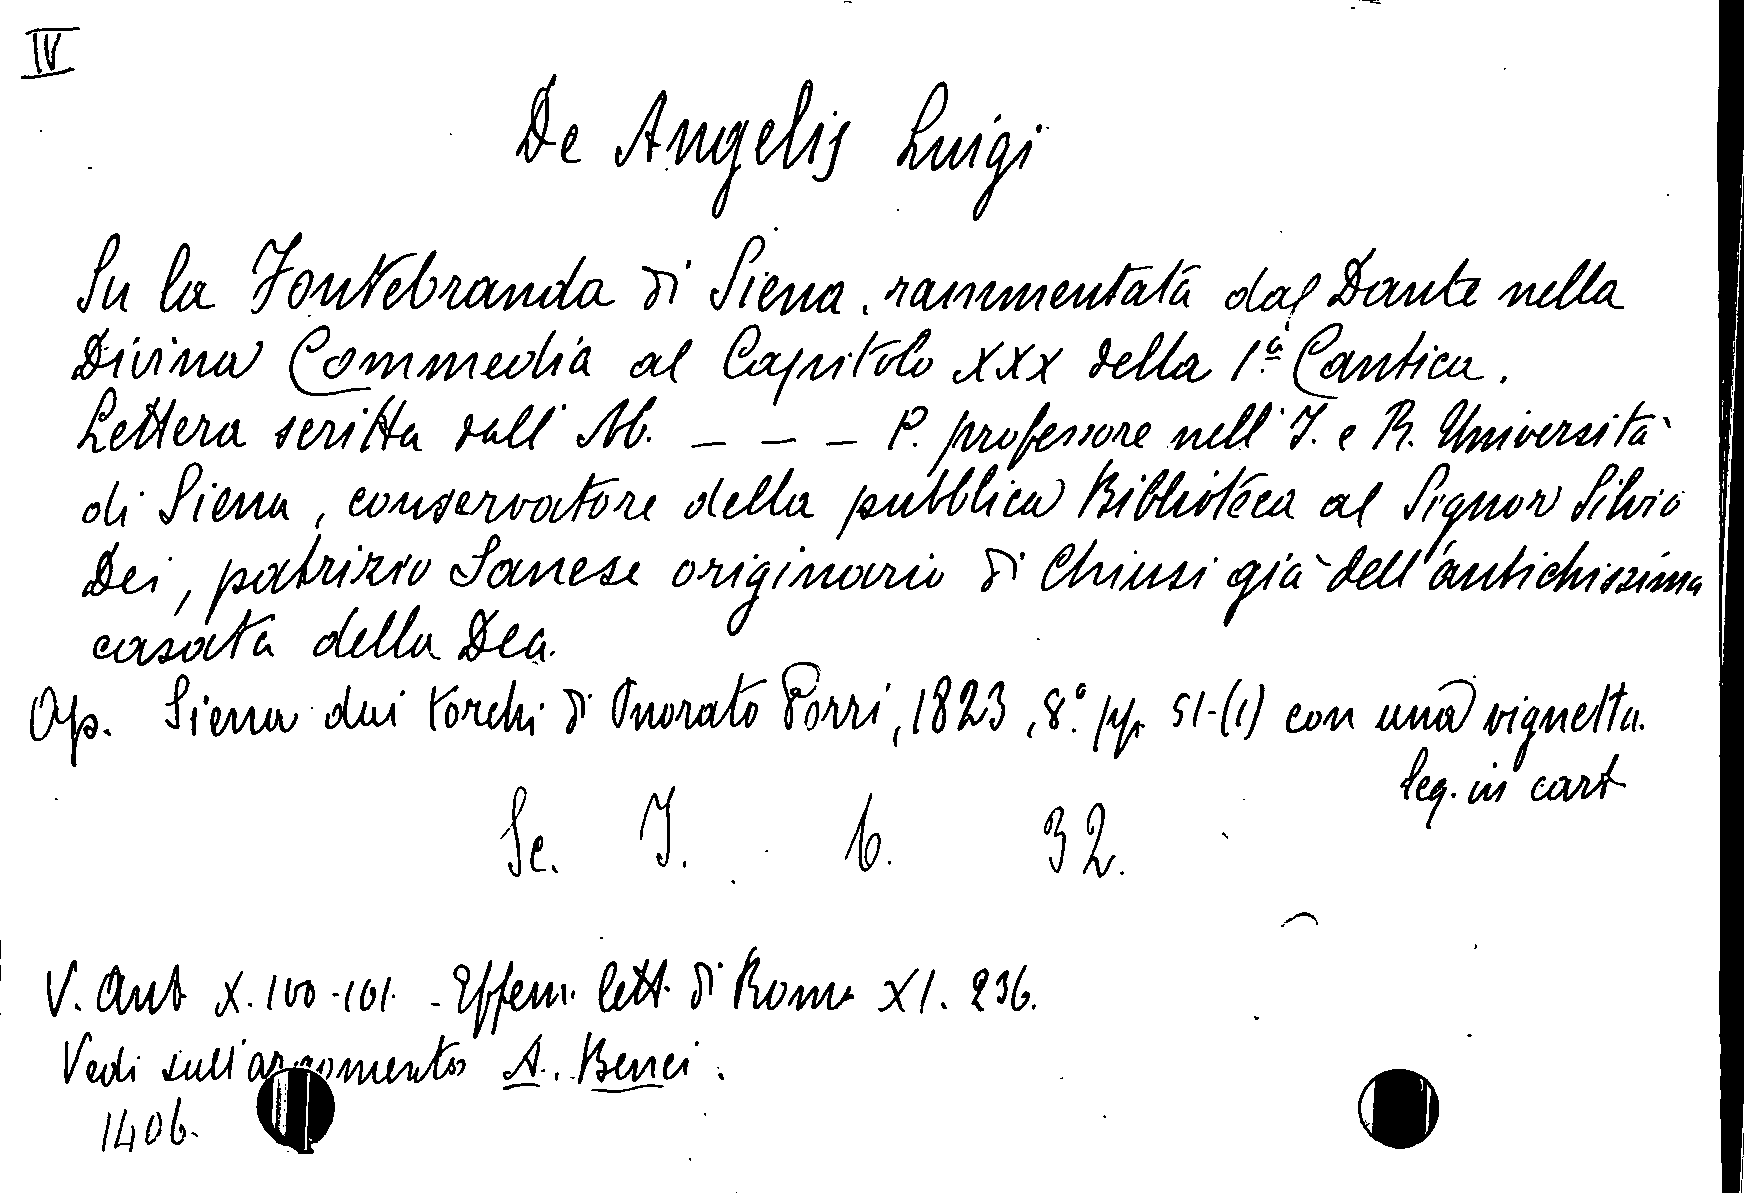 IV
De Angelis Luigi
Su la Fontebranda di Siena, rammentata dal Dante nella
Divina Commedia al Capitolo XXX della 1ª Cantica.
Lettera scritta dall' Ab. _ _ _ P. professore nell' I. e R. Università
di Siena, conservatore della pubblica Biblioteca al Signor Silvio
Dei, patrizio Sanese originario di Chiusi già dell'antichissima
casata della Dea.
Op. Siena dai torchi di Onorato Porri, 1823, 8.° pp. 51-(1) con una vignetta.
leg. in cart
Se. I. 6. 32.
V. Ant X. 100-101. - Effem. lett. di Roma XI. 236.
Vedi sull'argomento A. Benci.
1406.